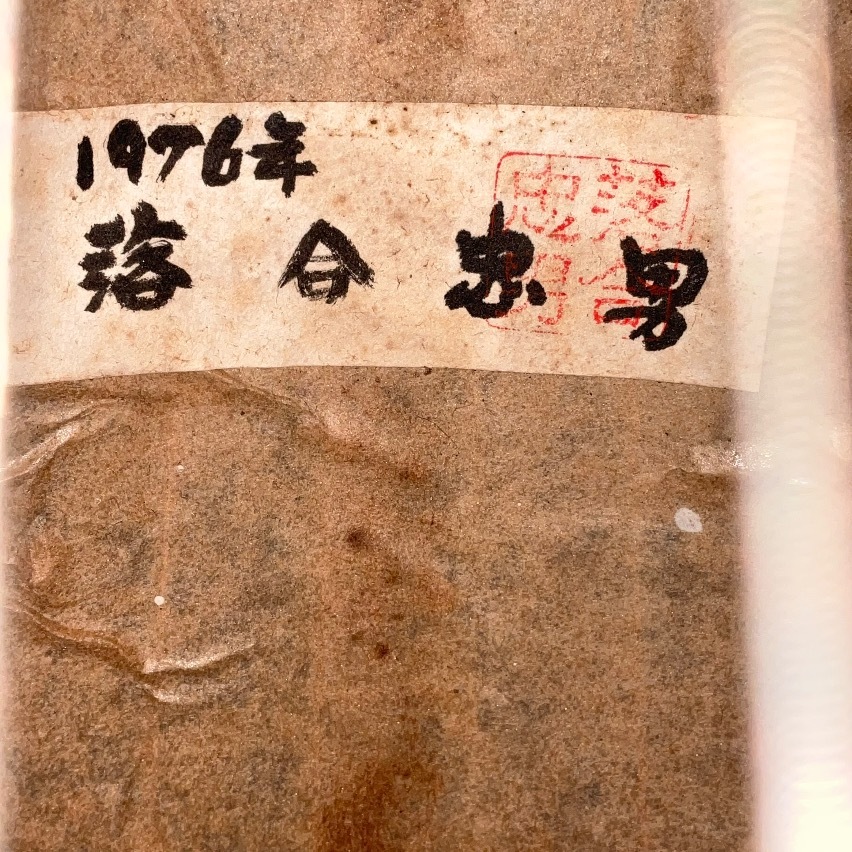 1976年
落合忠男
落合
忠男